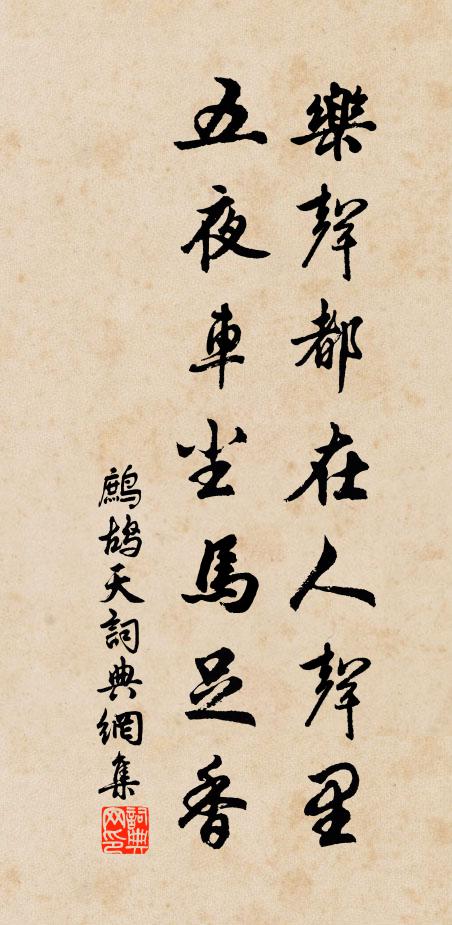 樂聲都在人聲里
五夜車尘馬足香
鷓鴣天詞典網集
詞典
网印